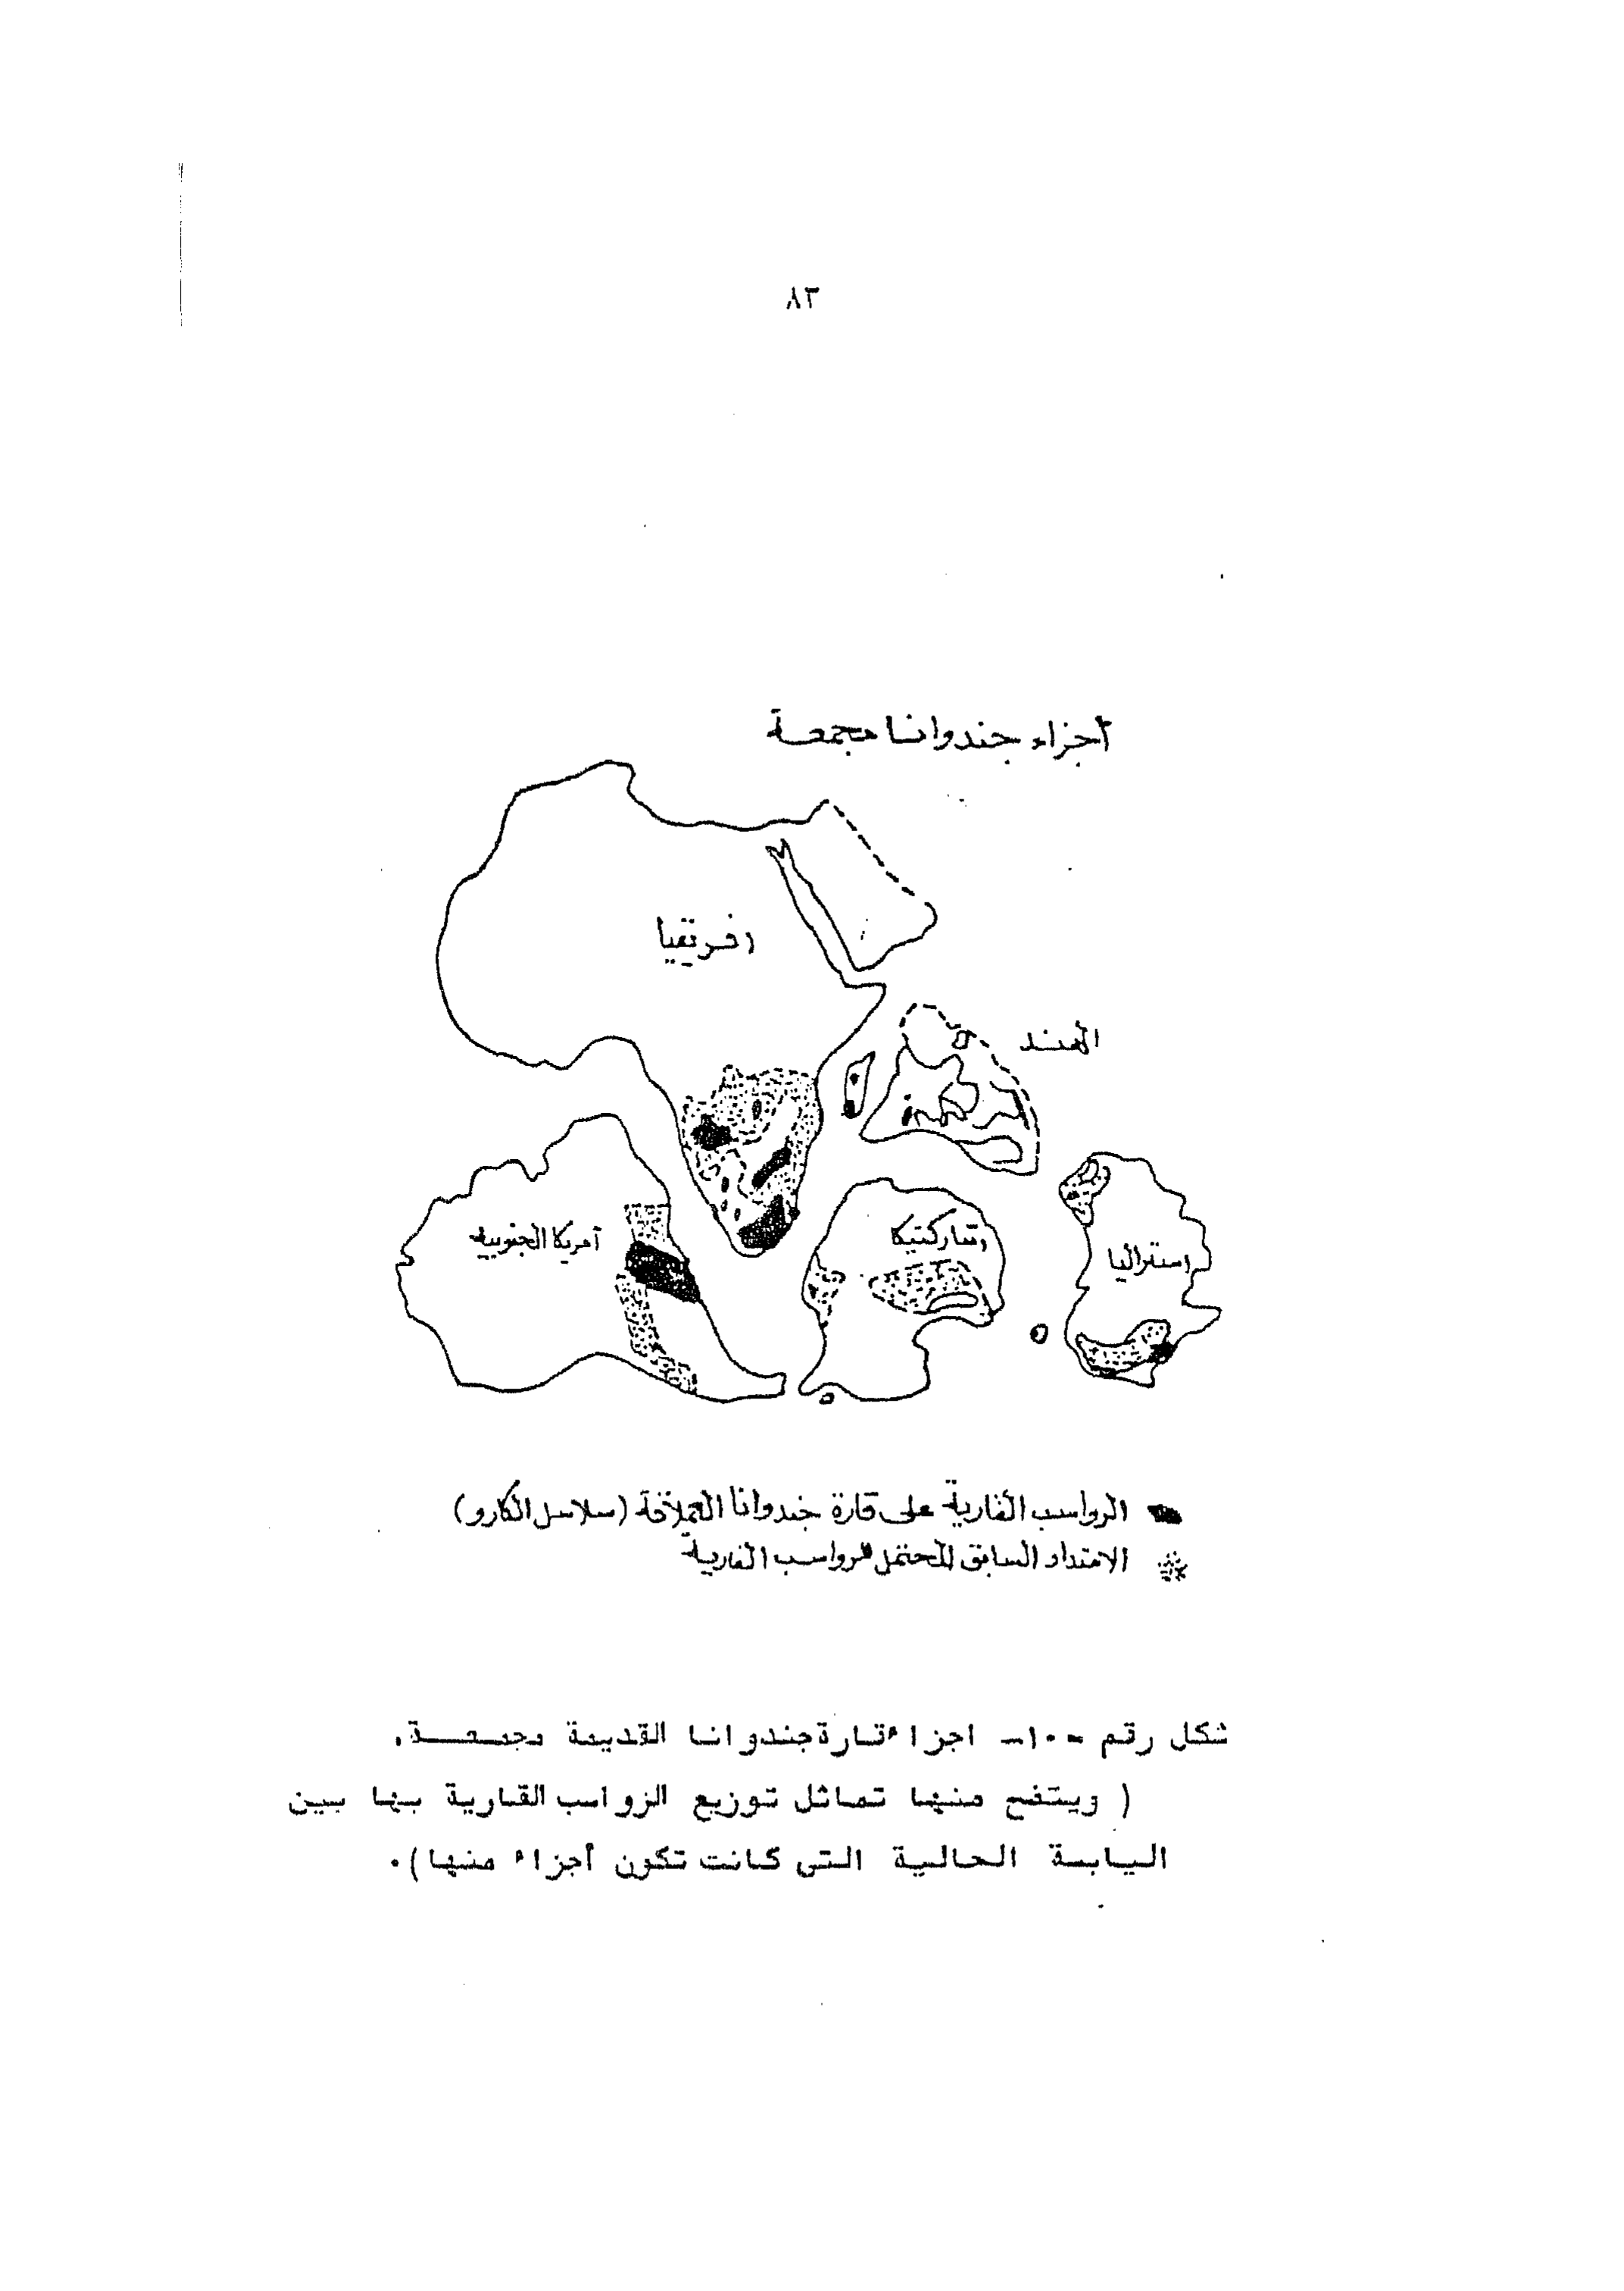 ٨٣
أجزاء جندوانا مجمعة
افريقيا
الهند
أمريكا الجنوبية
نتاركتيكا
استراليا
الرواسب القارية على قارة جندوانا العملاقة (سلاسل الكارو)
الامتداد السابق المحتمل للرواسب القارية
شكل رقم -١٠- اجزاء قارة جندوانا القديمة مجمعة.
( ويتضح منها تماثل توزيع الرواسب القارية بها بين
اليابسة الحالية التى كانت تكون أجزاء منها).